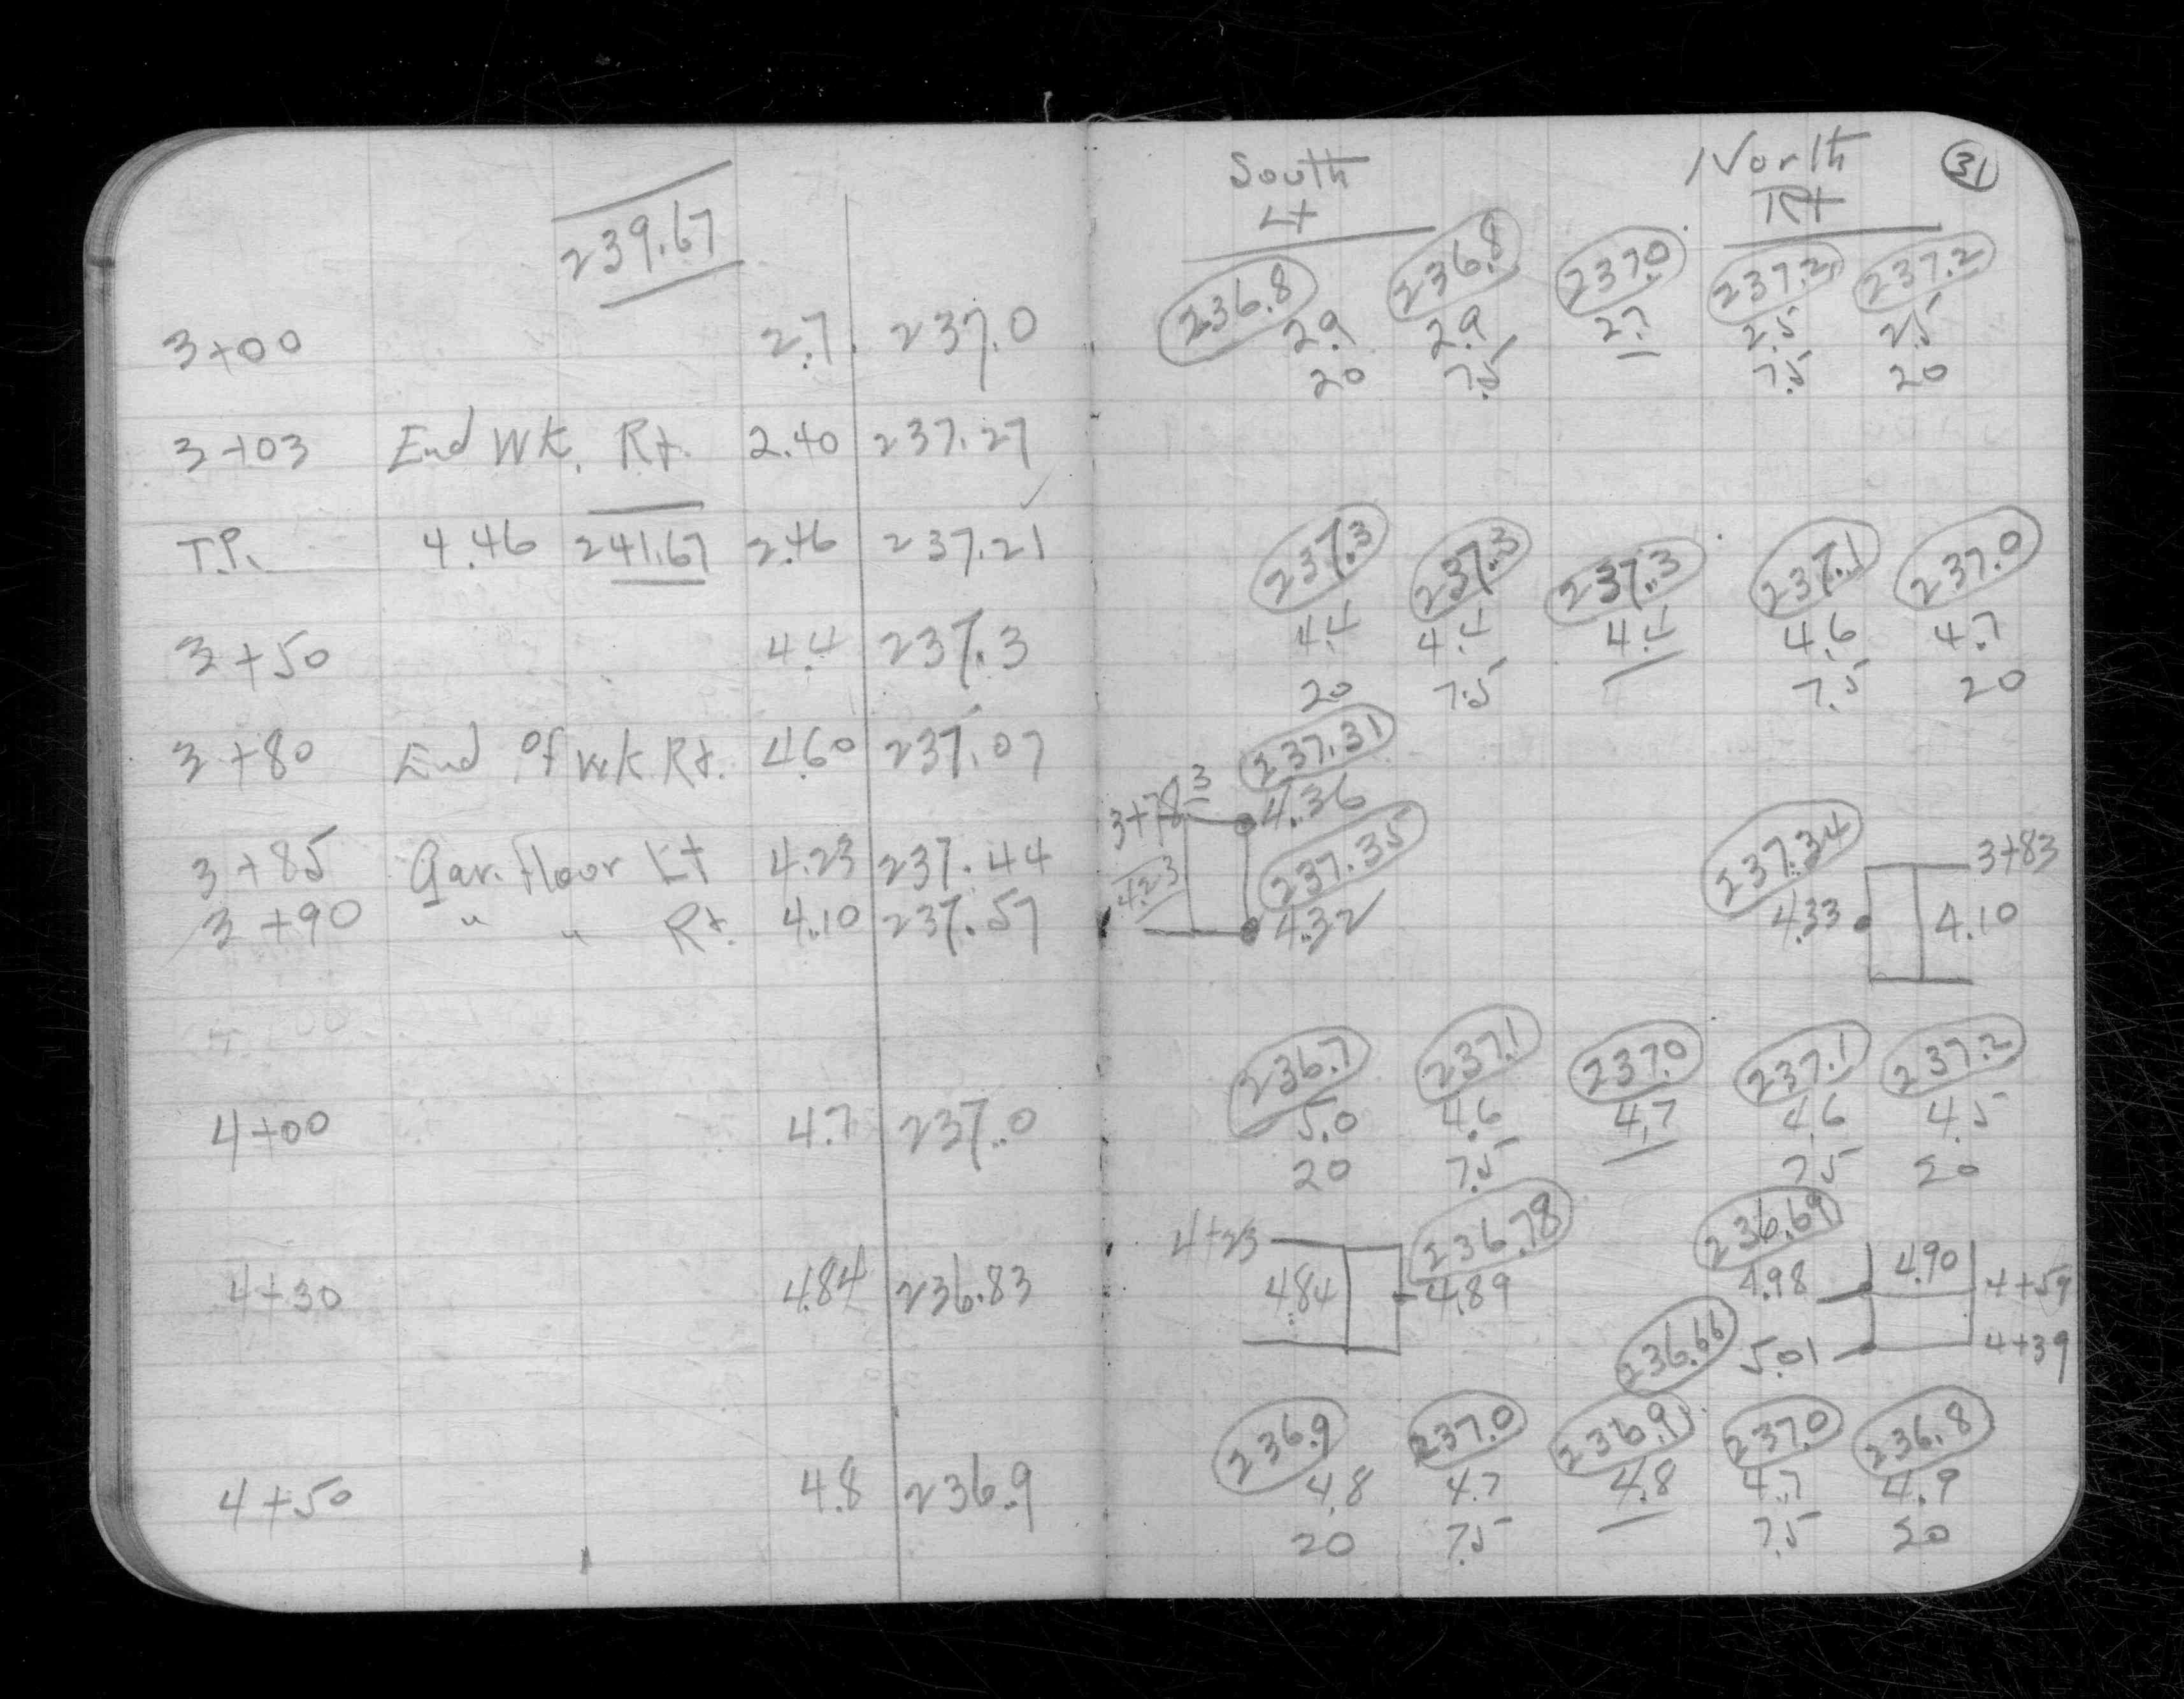 239.67
3+00 2.7 237.0
3+03 End Wk. Rt. 2.40 237.27
T.P. 4.46 241.67 2.46 237.21
3+50 4.4 237.3
3+80 End of Wk Rt. 4.60 237.07
3+85 Gar. Floor Lt 4.23 237.44
3+90 " " Rt. 4.10 237.57
4+00 4.7 237.0
4+30 4.84 236.83
4+50 4.8 236.9
South North 31
Lt Rt
236.8 236.8 237.0 237.2 237.2
2.9 2.9 2.7 2.5 2.5
20 7.5 7.5 20
237.3 237.3 237.3 237.1 237.0
4.4 4.4 4.4 4.6 4.7
20 7.5 7.5 20
237.31
3+78 3 4.36
237.35 237.34 3+83
4.23 4.32 4.33 4.10
236.7 237.1 237.0 237.1 237.2
5.0 4.6 4.7 4.6 4.5
20 7.5 7.5 20
4+23 236.78 236.69
4.84 4.89 4.98 4.90 4+59
236.66 5.01 4+39
236.9 237.0 236.9 237.0 236.8
4.8 4.7 4.8 4.7 4.9
20 7.5 7.5 20